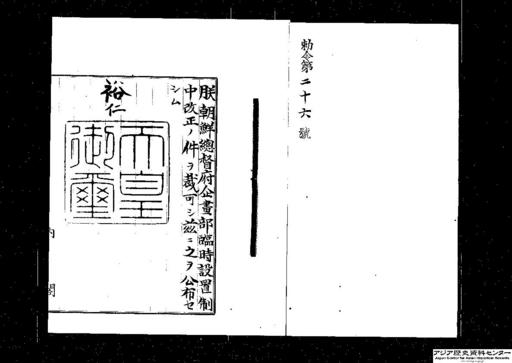 勅令第二十六號
朕朝鮮總督府企畫部臨時設置制
中改正ノ件ヲ裁可シ茲ニ之ヲ公布セ
シム
裕仁
天皇御璽
内閣
アジア歴史資料センター
Japan Center for Asian Historical Records